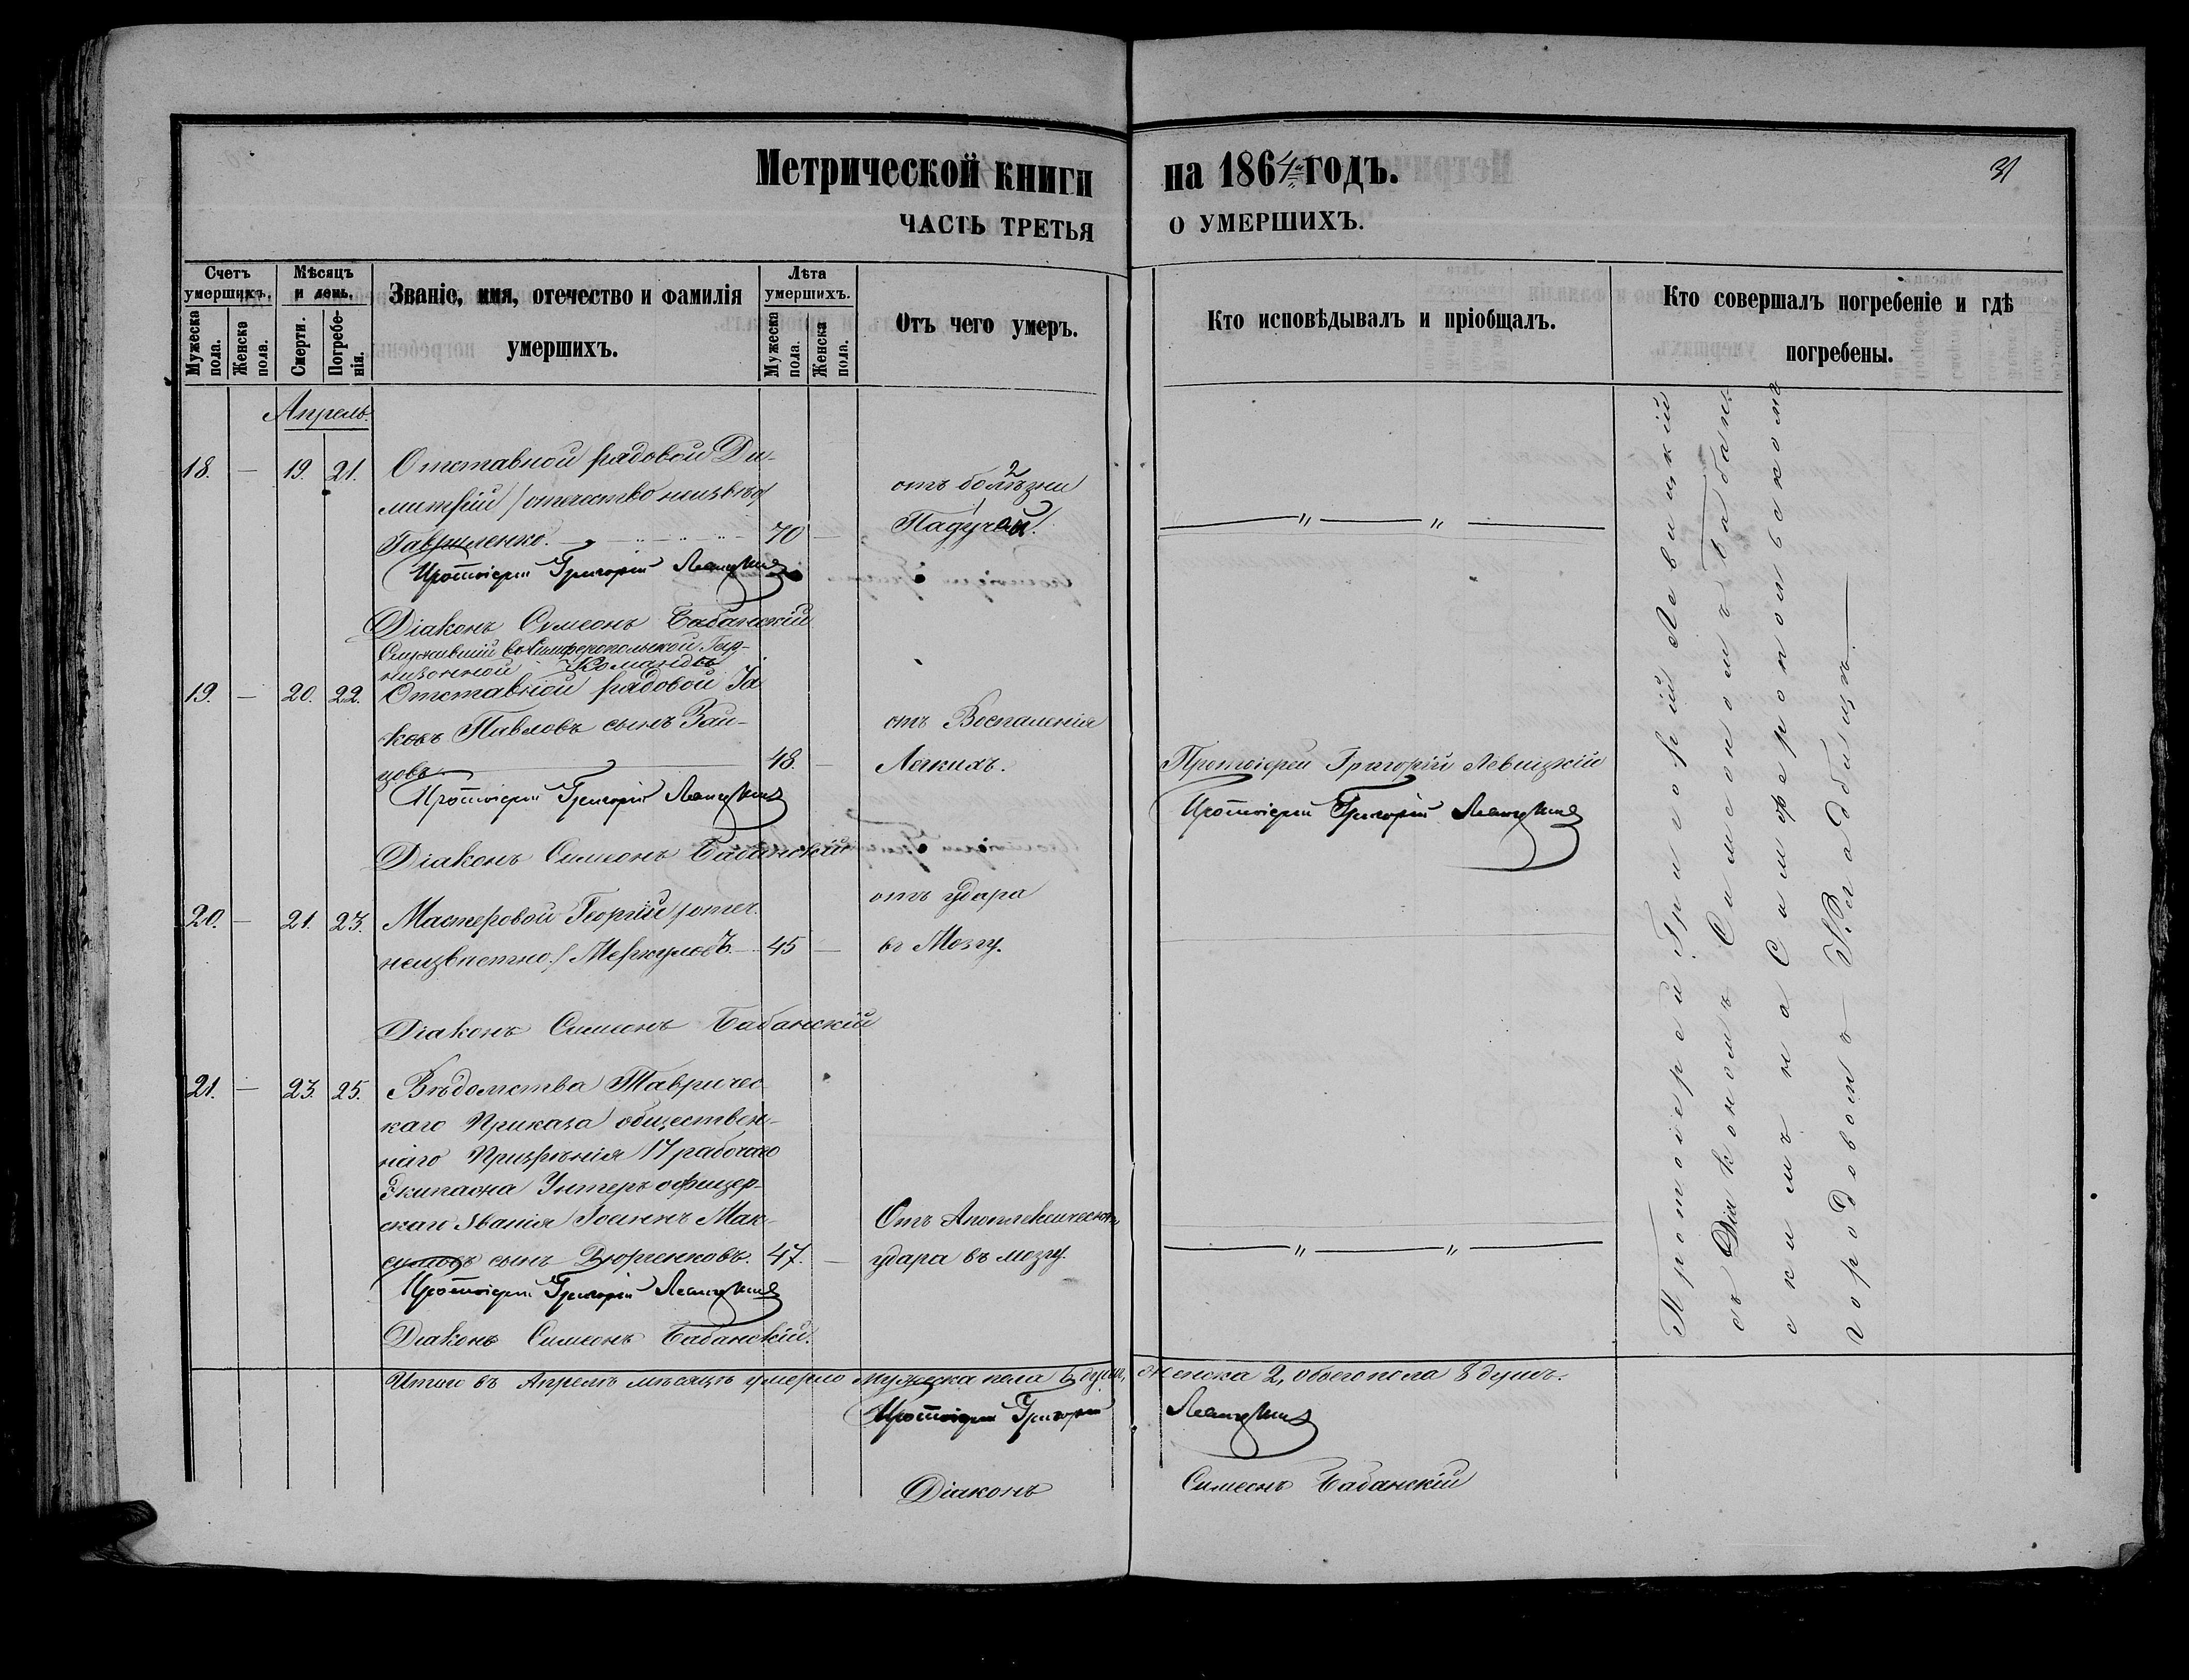 Метрической книги на 1864й годъ.
31
ЧАСТЬ ТРЕТЬЯ О УМЕРШИХЪ.
Счетъ умершихъ.
Мужеска пола.
Женска пола.
Мѣсяцъ и день.
Смерти.
Погребенія.
Званіе, имя, отечество и фамилія
умершихъ.
Лѣта умершихъ.
Мужеска пола.
Женска пола.
Отъ чего умеръ.
Кто исповѣдывалъ и пріобщалъ.
Кто совершалъ погребеніе и гдѣ
погребены.
Апрель.
18. — 19. 21. Отставной рядовой Ди-
митрій /отечество неизвѣс/
Гавриленко. 70 —
отъ болѣзни
Падучей.
— „ — „ —
Протоіерей Григорій Левицкій
Діаконъ Симеонъ Бабанскій
Служившій въ Симферопольской Гар-
низонной Командѣ
19. — 20. 22. Отставной рядовой Іа
ковъ Павловъ сынъ Зай-
цовъ 48. —
отъ Воспаленія
Легкихъ.
Протоіерей Григорій Левицкій
Протоіерей Григорій Левицкій
Протоіерей Григорій Левицкій
Діаконъ Симеонъ Бабанскій
20. — 21. 23. Мастеровой Георгій /отеч.
неизвѣстно./ Меркуловъ. 45 —
отъ удара
въ Мозгу.
Діаконъ Симеонъ Бабанскій
21. — 23. 25. Вѣдомства Тавричес
каго Приказа обществен-
наго Призрѣнія 17 рабочаго
Экипажа Унтеръ офицер-
скаго Званія Іоаннъ Мак-
симовъ сынъ 47. —
Отъ Апоплексическаго
удара въ мозгу.
— „ — „ —
Протоіерей Григорій Левицкій
Діаконъ Симеонъ Бабанскій.
Протоіерей Григорій Левицкій
съ Діакономъ Симеономъ Бабан-
скимъ на Симферопольскомъ
городовомъ Кладбищѣ
Итого въ Апрелѣ мѣсяцѣ умерло мужеска пола 6 душъ, женска 2, обоего пола 8 душъ.
Протоіерей Григорій Левицкій
Діаконъ Симеонъ Бабанскій